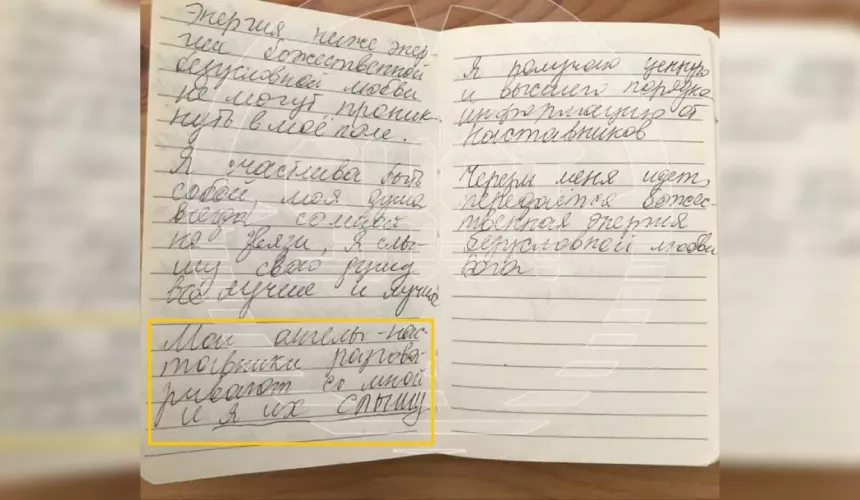 Энергия ниже энер-
гии божественной
безусловной любви
не могут проник-
нуть в моё поле.
Я счастлива быть
собой, моя душа
всегда со мной
на связи, я слы-
шу свою душу
всё лучше и лучше
Мои ангелы-нас-
тавники разгова-
ривают со мной
и я их слышу
Я получаю ценную
и высшего порядка
информацию от
Наставников
Через меня идет,
передаётся божес-
твенная энергия
безусловной любви
Бога